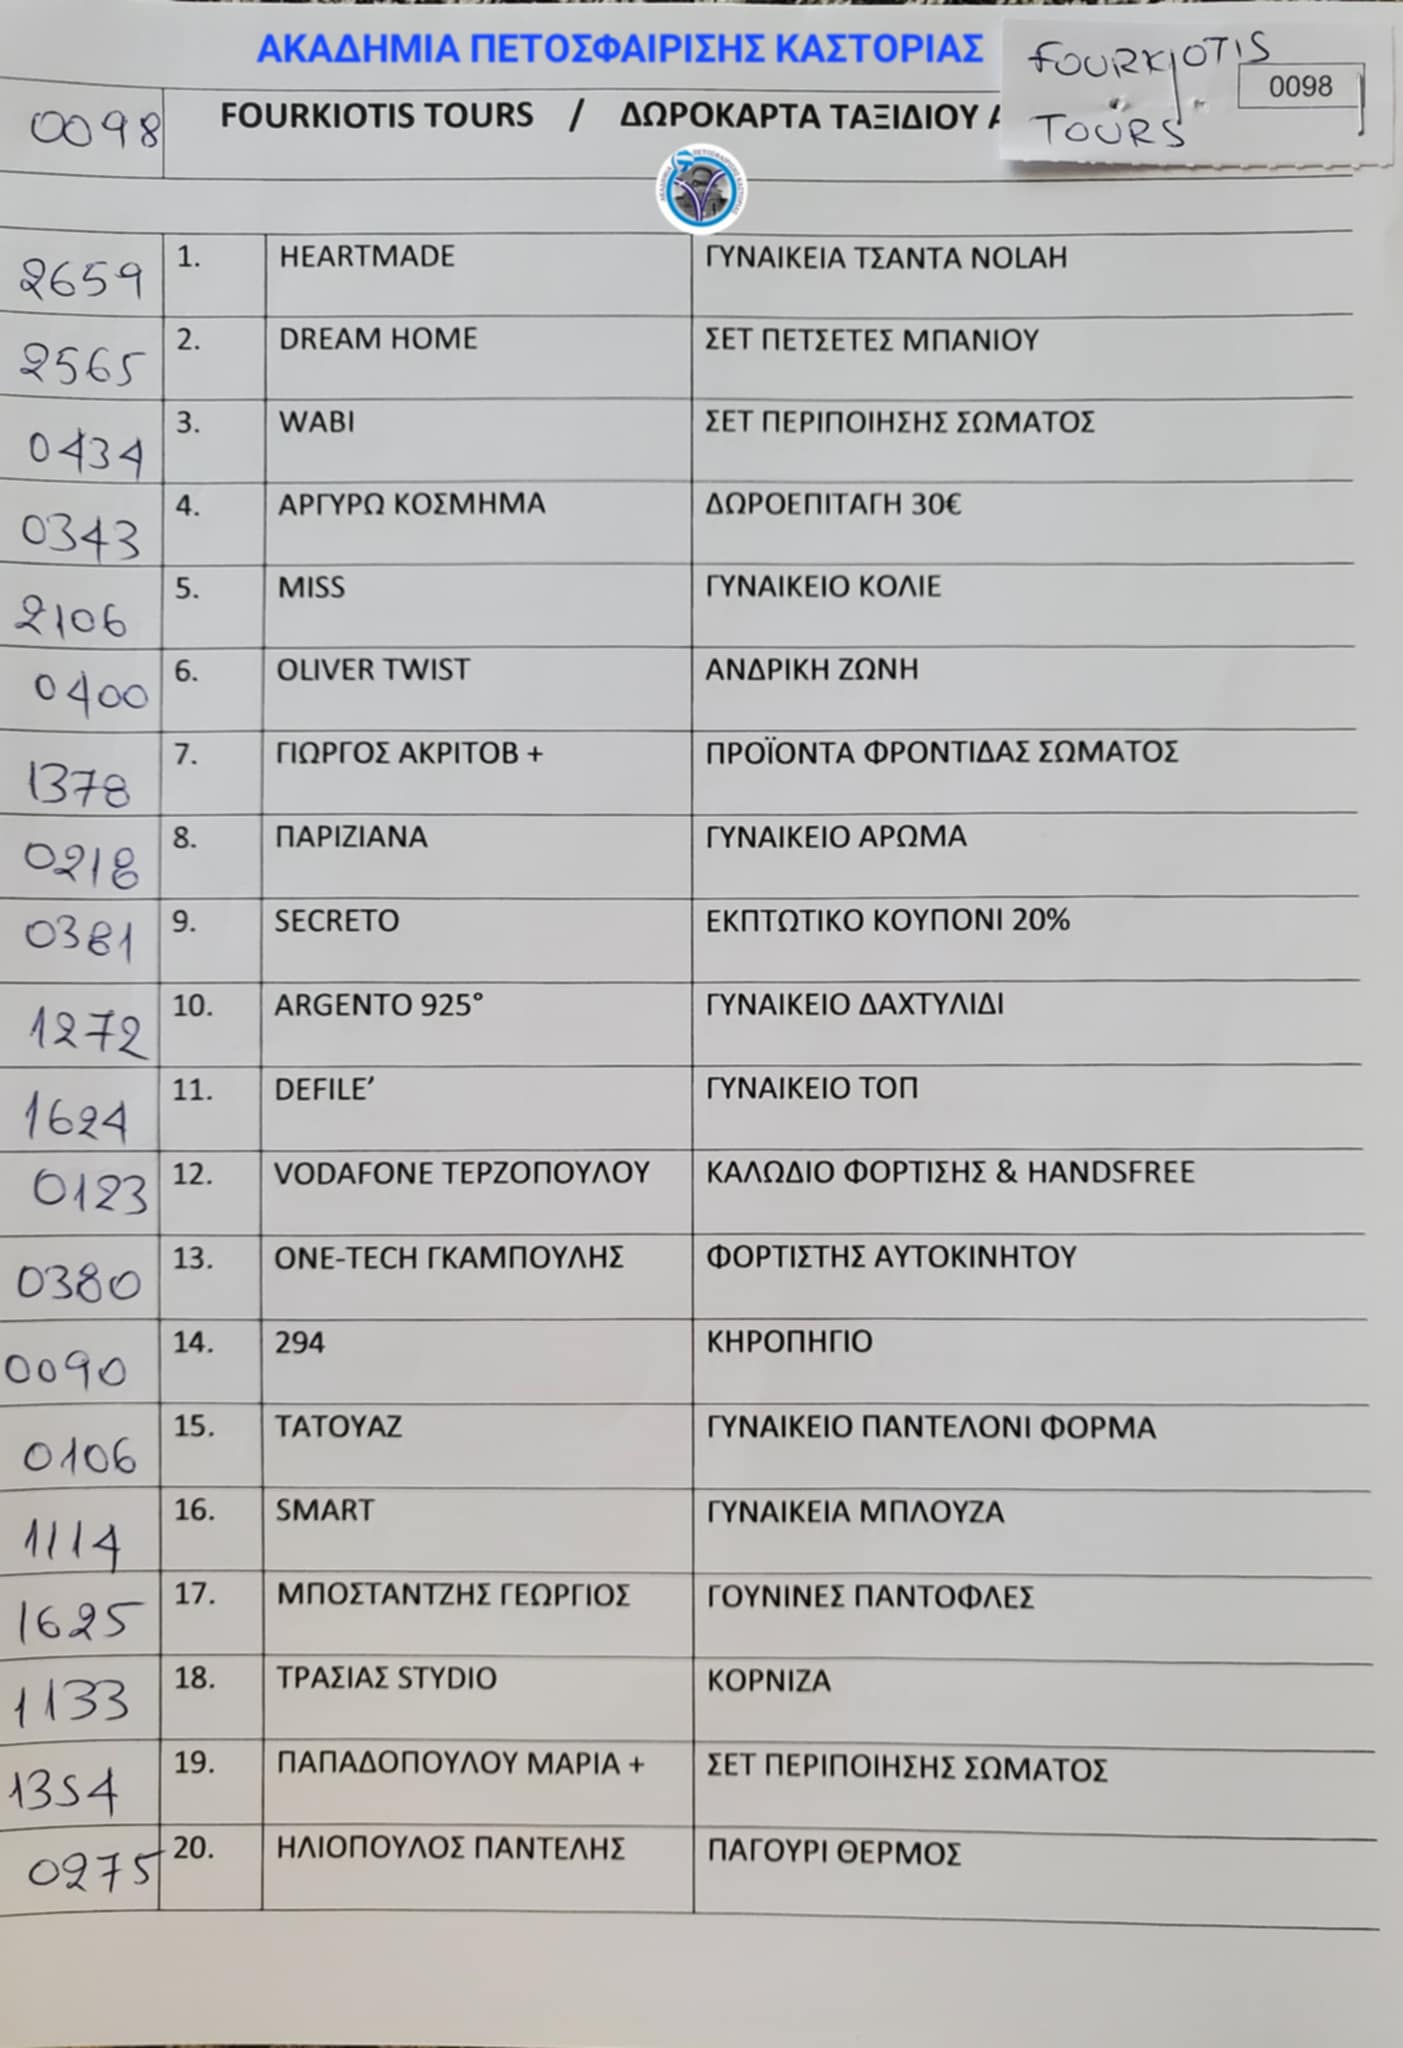 ΑΚΑΔΗΜΙΑ ΠΕΤΟΣΦΑΙΡΙΣΗΣ ΚΑΣΤΟΡΙΑΣ
FOURKIOTIS
0098
TOURS
0098 FOURKIOTIS TOURS / ΔΩΡΟΚΑΡΤΑ ΤΑΞΙΔΙΟΥ
2659 1. HEARTMADE ΓΥΝΑΙΚΕΙΑ ΤΣΑΝΤΑ NOLAH
2565 2. DREAM HOME ΣΕΤ ΠΕΤΣΕΤΕΣ ΜΠΑΝΙΟΥ
0434 3. WABI ΣΕΤ ΠΕΡΙΠΟΙΗΣΗΣ ΣΩΜΑΤΟΣ
0343 4. ΑΡΓΥΡΩ ΚΟΣΜΗΜΑ ΔΩΡΟΕΠΙΤΑΓΗ 30€
2106 5. MISS ΓΥΝΑΙΚΕΙΟ ΚΟΛΙΕ
0400 6. OLIVER TWIST ΑΝΔΡΙΚΗ ΖΩΝΗ
1378 7. ΓΙΩΡΓΟΣ ΑΚΡΙΤΟΒ + ΠΡΟΪΟΝΤΑ ΦΡΟΝΤΙΔΑΣ ΣΩΜΑΤΟΣ
0218 8. ΠΑΡΙΖΙΑΝΑ ΓΥΝΑΙΚΕΙΟ ΑΡΩΜΑ
0381 9. SECRETO ΕΚΠΤΩΤΙΚΟ ΚΟΥΠΟΝΙ 20%
1272 10. ARGENTO 925° ΓΥΝΑΙΚΕΙΟ ΔΑΧΤΥΛΙΔΙ
1624 11. DEFILE’ ΓΥΝΑΙΚΕΙΟ ΤΟΠ
0123 12. VODAFONE ΤΕΡΖΟΠΟΥΛΟΥ ΚΑΛΩΔΙΟ ΦΟΡΤΙΣΗΣ & HANDSFREE
0380 13. ONE-TECH ΓΚΑΜΠΟΥΛΗΣ ΦΟΡΤΙΣΤΗΣ ΑΥΤΟΚΙΝΗΤΟΥ
0090 14. 294 ΚΗΡΟΠΗΓΙΟ
0106 15. ΤΑΤΟΥΑΖ ΓΥΝΑΙΚΕΙΟ ΠΑΝΤΕΛΟΝΙ ΦΟΡΜΑ
1114 16. SMART ΓΥΝΑΙΚΕΙΑ ΜΠΛΟΥΖΑ
1625 17. ΜΠΟΣΤΑΝΤΖΗΣ ΓΕΩΡΓΙΟΣ ΓΟΥΝΙΝΕΣ ΠΑΝΤΟΦΛΕΣ
1133 18. ΤΡΑΣΙΑΣ STYDIO ΚΟΡΝΙΖΑ
1354 19. ΠΑΠΑΔΟΠΟΥΛΟΥ ΜΑΡΙΑ + ΣΕΤ ΠΕΡΙΠΟΙΗΣΗΣ ΣΩΜΑΤΟΣ
0275 20. ΗΛΙΟΠΟΥΛΟΣ ΠΑΝΤΕΛΗΣ ΠΑΓΟΥΡΙ ΘΕΡΜΟΣ